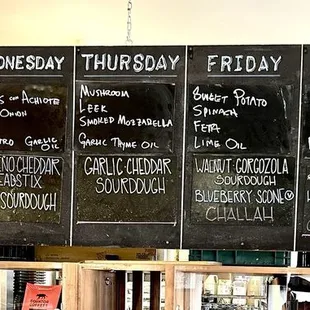 ONESDAY
S CON ACHIOTE
ONION
RO GARLIC OIL
ENO CHEDDAR
EADSTIX
SOURDOUGH
THURSDAY
MUSHROOM
LEEK
SMOKED MOZZARELLA
GARLIC THYME OIL
GARLIC-CHEDDAR
SOURDOUGH
FRIDAY
POTATO
SPINACH
FETA
LIME OIL
WALNUT-GORGOZOLA
SOURDOUGH
BLUEBERRY SCONE V
CHALLAH